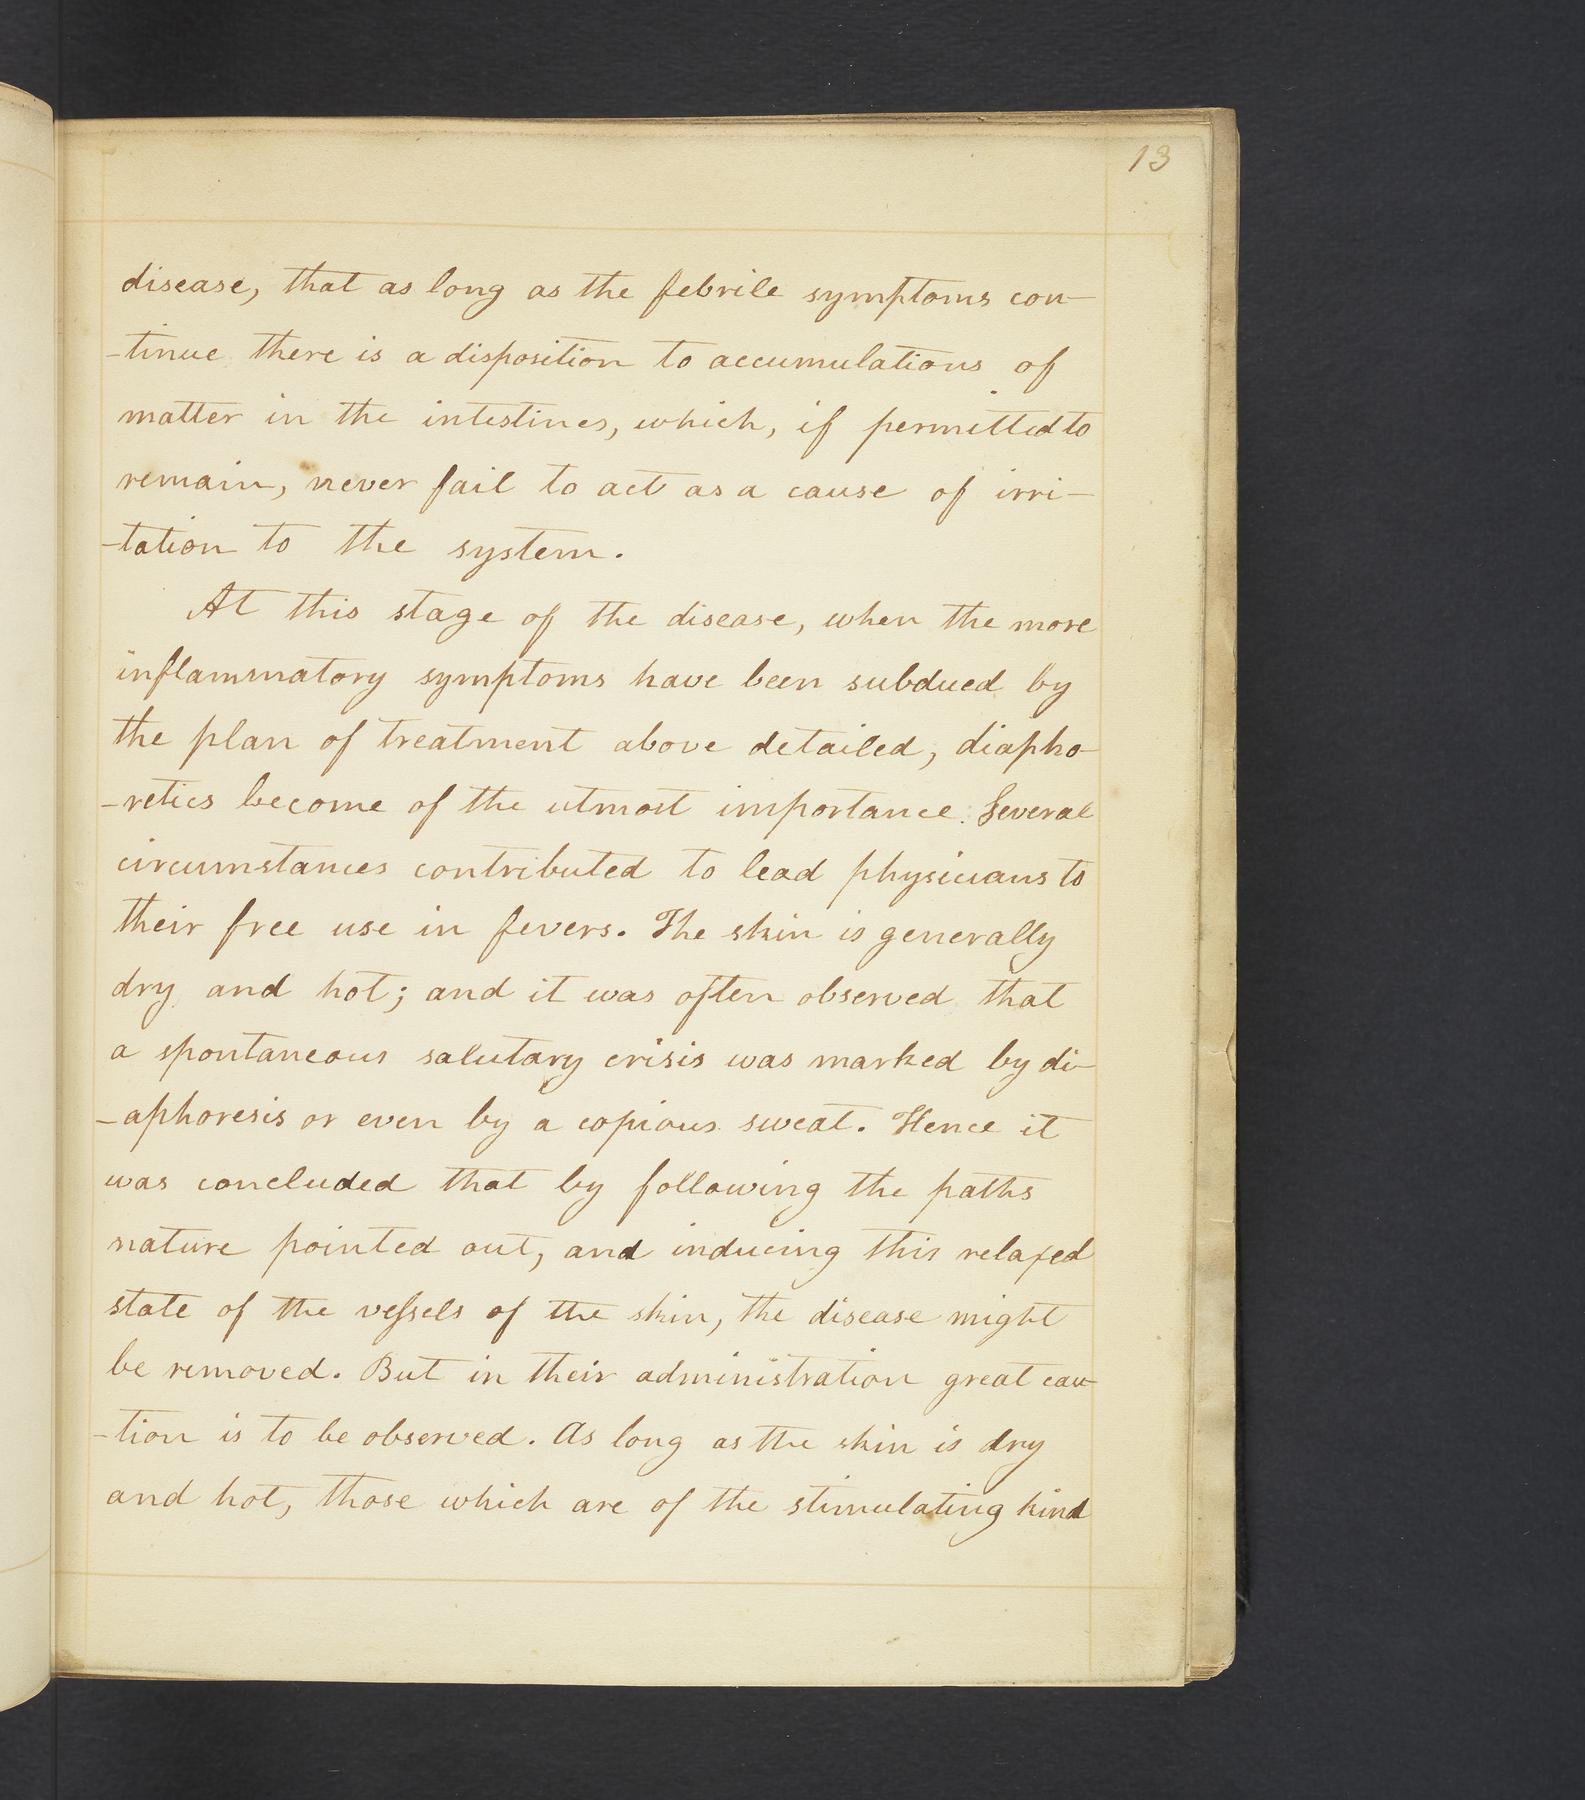 13
disease, that as long as the febrile symptoms con-
-tinue there is a disposition to accumulations of
matter in the intestines, which, if permitted to
remain, never fail to act as a cause of irri-
-tation to the system.
At this stage of the disease, when the more
inflammatory symptoms have been subdued by
the plan of treatment above detailed, diapho-
-retics become of the utmost importance. Several
circumstances contributed to lead physicians to
their free use in fevers. The skin is generally
dry and hot; and it was often observed that
a spontaneous salutary crisis was marked by di-
-aphoresis or even by a copious sweat. Hence it
was concluded that by following the paths
nature pointed out, and inducing this relaxed
state of the veſsels of the skin, the disease might
be removed. But in their administration great cau-
-tion is to be observed. As long as the skin is dry
and hot, those which are of the stimulating kind